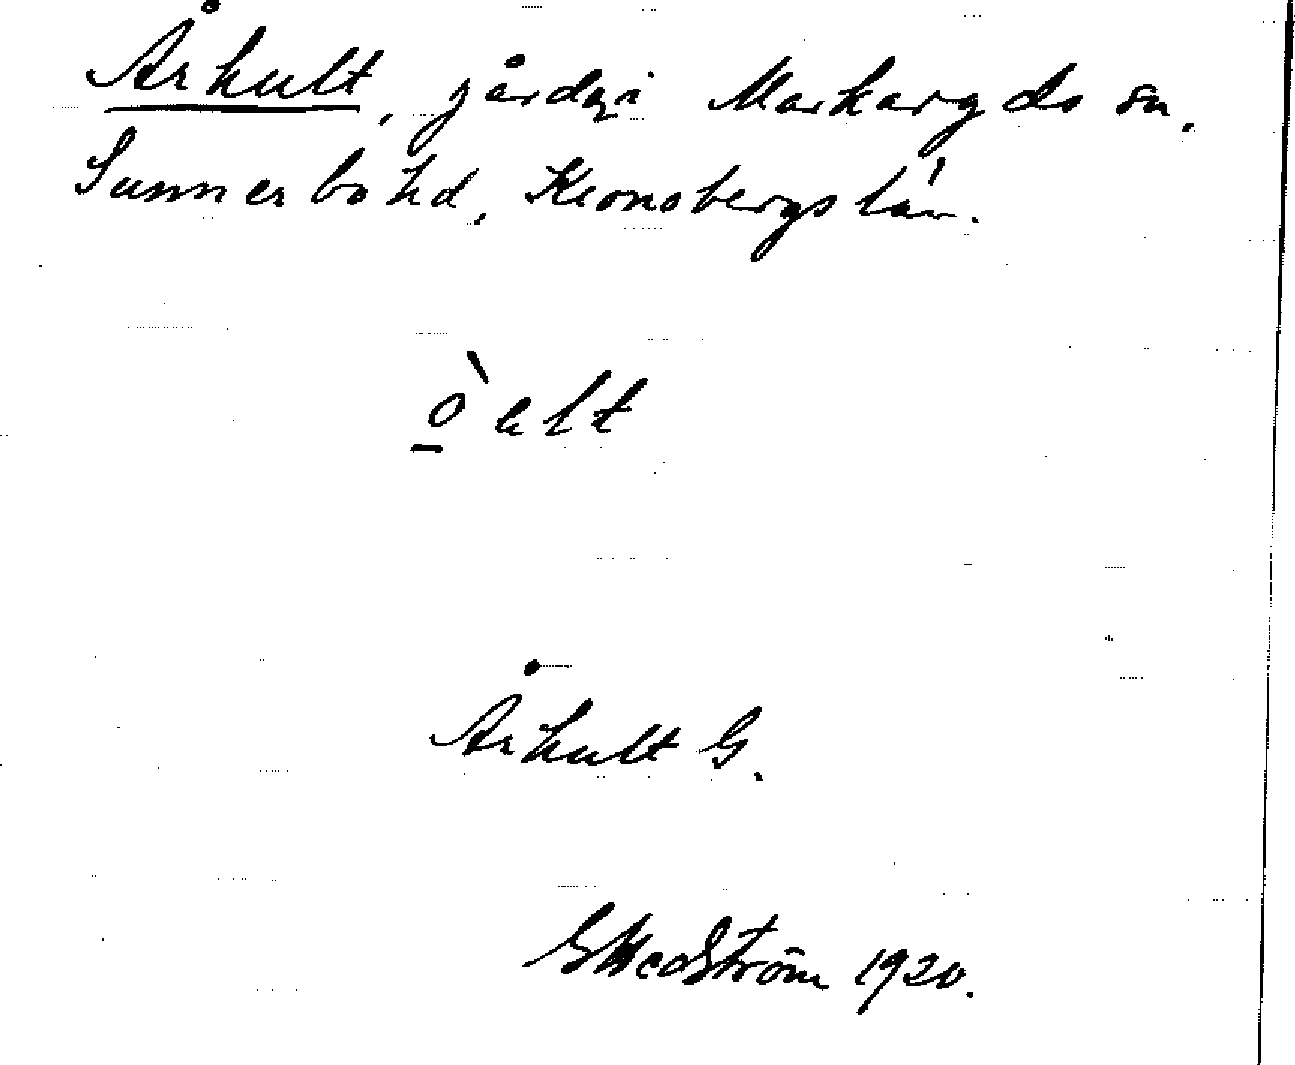 Århult, gård, i Markaryds sn,
Sunnerbo hd, Kronobergs län.
ò̲elt
Århult G.
1920.